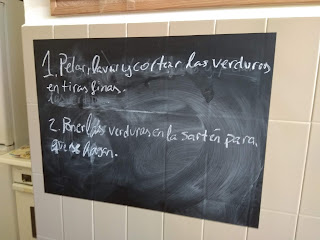 1. Pelar, lavar y cortar las verduras
en tiras finas.
2. Poner las verduras en la sartén para
que se hagan.